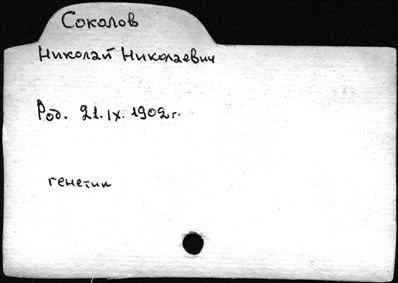 Соколов
Николай Николаевич
Род. 21.IX.1902г.
генетик